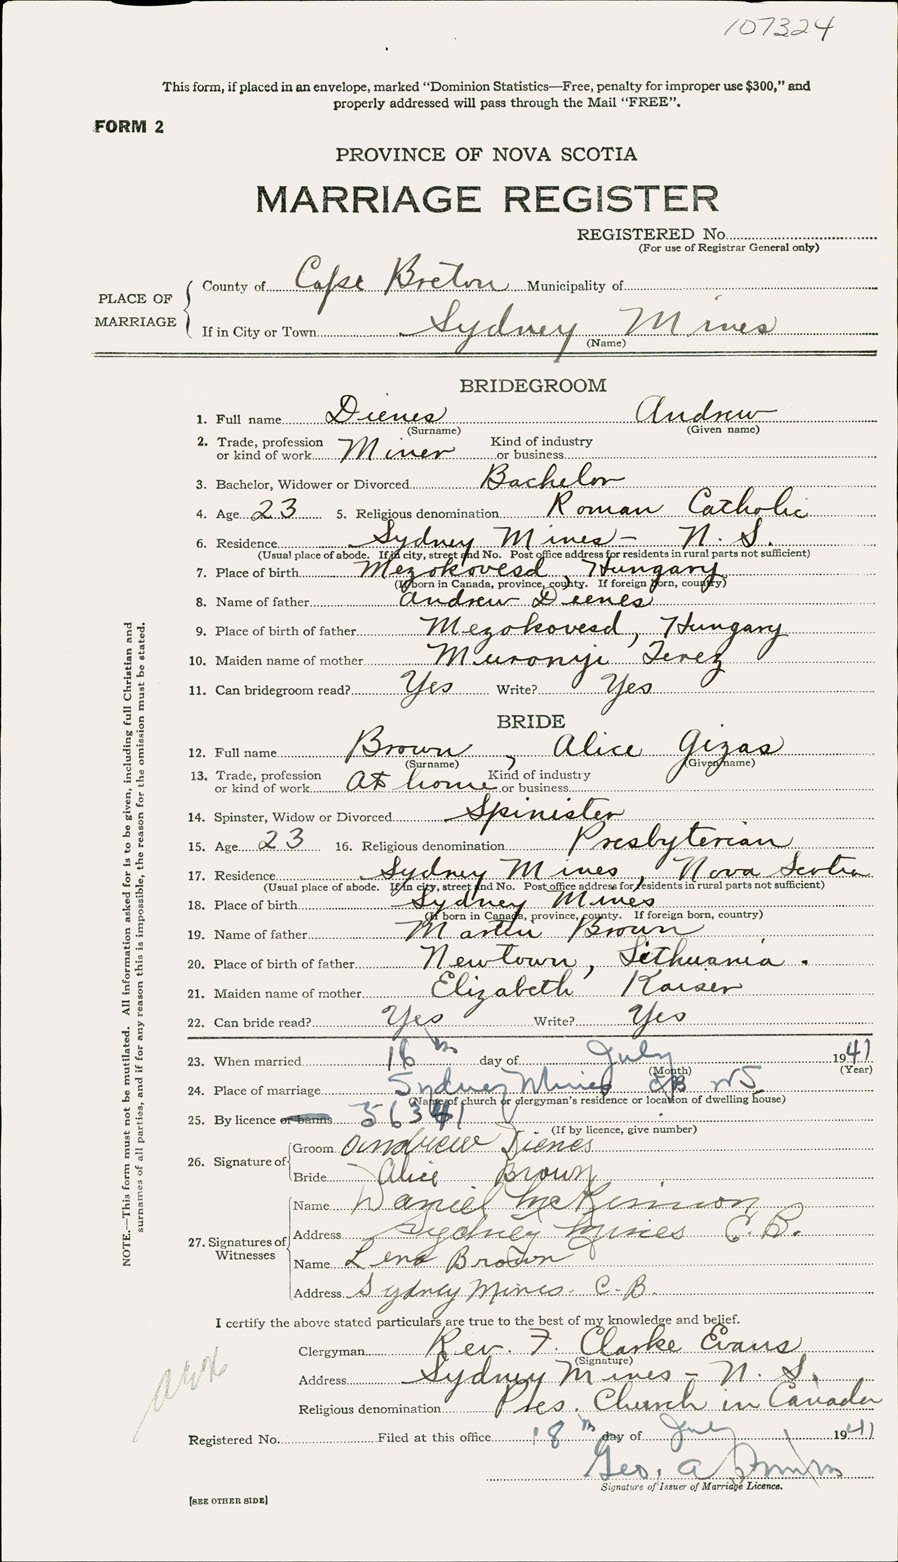 107324
This form, if placed in an envelope, marked “Dominion Statistics—Free, penalty for improper use $300,” and
properly addressed will pass through the Mail “FREE”.
FORM 2
PROVINCE OF NOVA SCOTIA
MARRIAGE REGISTER
REGISTERED No.
(For use of Registrar General only)
PLACE OF MARRIAGE
County of Cape Breton Municipality of
If in City or Town Sydney Mines
(Name)
BRIDEGROOM
1. Full name Dienes Andrew
(Surname) (Given name)
2. Trade, profession or kind of work Miner Kind of industry or business
3. Bachelor, Widower or Divorced Bachelor
4. Age 23 5. Religious denomination Roman Catholic
6. Residence Sydney Mines - N. S.
(Usual place of abode. If in city, street and No. Post office address for residents in rural parts not sufficient)
7. Place of birth Mezokovesd, Hungary
(If born in Canada, province, county. If foreign born, country)
8. Name of father Andrew Dienes
9. Place of birth of father Mezokovesd, Hungary
10. Maiden name of mother Muronyi Terez
11. Can bridegroom read? Yes Write? Yes
BRIDE
12. Full name Brown, Alice Gizas
(Surname) (Given name)
13. Trade, profession or kind of work At home Kind of industry or business
14. Spinster, Widow or Divorced Spinister
15. Age 23 16. Religious denomination Presbyterian
17. Residence Sydney Mines, Nova Scotia
(Usual place of abode. If in city, street and No. Post office address for residents in rural parts not sufficient)
18. Place of birth Sydney Mines
(If born in Canada, province, county. If foreign born, country)
19. Name of father Martin Brown
20. Place of birth of father Newtown, Lithuania.
21. Maiden name of mother Elizabeth Kaiser
22. Can bride read? Yes Write? Yes
23. When married 16th day of July 1941
(Month) (Year)
24. Place of marriage Sydney Mines CB NS
(Name of church or clergyman's residence or location of dwelling house)
25. By licence or banns
(If by licence, give number)
26. Signature of
Groom Andrew Dienes
Bride Alice Brown
27. Signatures of Witnesses
Name Daniel McKinnon
Address Sydney Mines C. B.
Name Lena Brown
Address Sydney Mines. C-B.
I certify the above stated particulars are true to the best of my knowledge and belief.
Clergyman Rev. F. Clarke Evans
(Signature)
Address Sydney Mines - N. S.
Religious denomination Pres. Church in Canada
Registered No. Filed at this office 18th day of July 1941
Geo. A
Signature of Issuer of Marriage Licence.
[SEE OTHER SIDE]
NOTE.—This form must not be mutilated. All information asked for is to be given, including full Christian and
surnames of all parties, and if for any reason this is impossible, the reason for the omission must be stated.